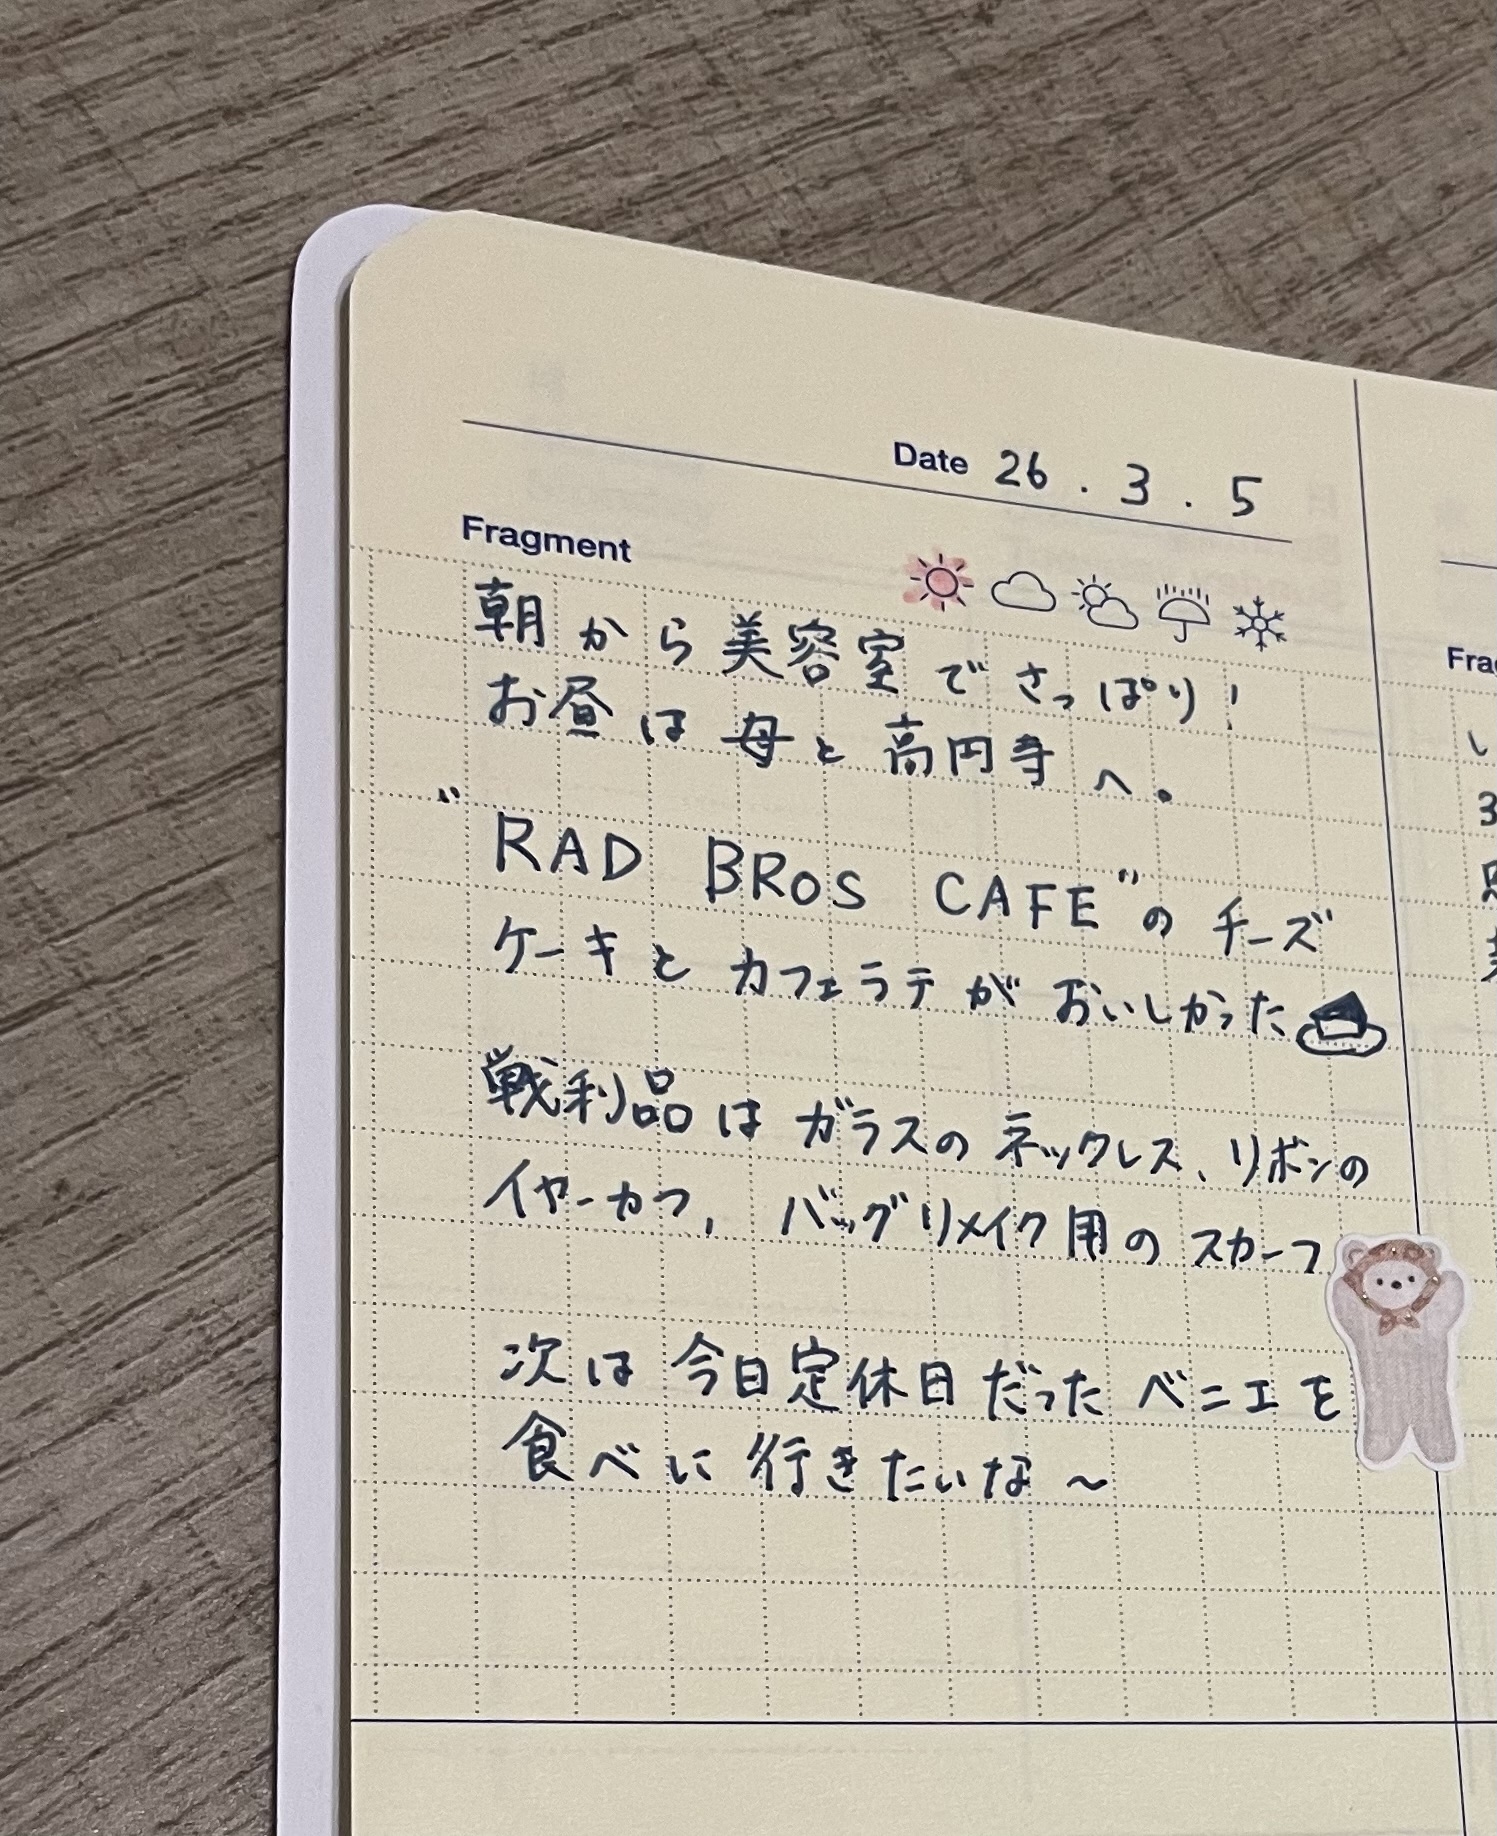 Date 26.3.5
Fragment
朝から美容室でさっぱり!
お昼は母と高円寺へ。
"RAD BROS CAFE"のチーズ
ケーキとカフェラテがおいしかった
戦利品はガラスのネックレス、リボンの
イヤーカフ、バッグリメイク用のスカーフ
次は今日定休日だったベニエを
食べに行きたいな〜